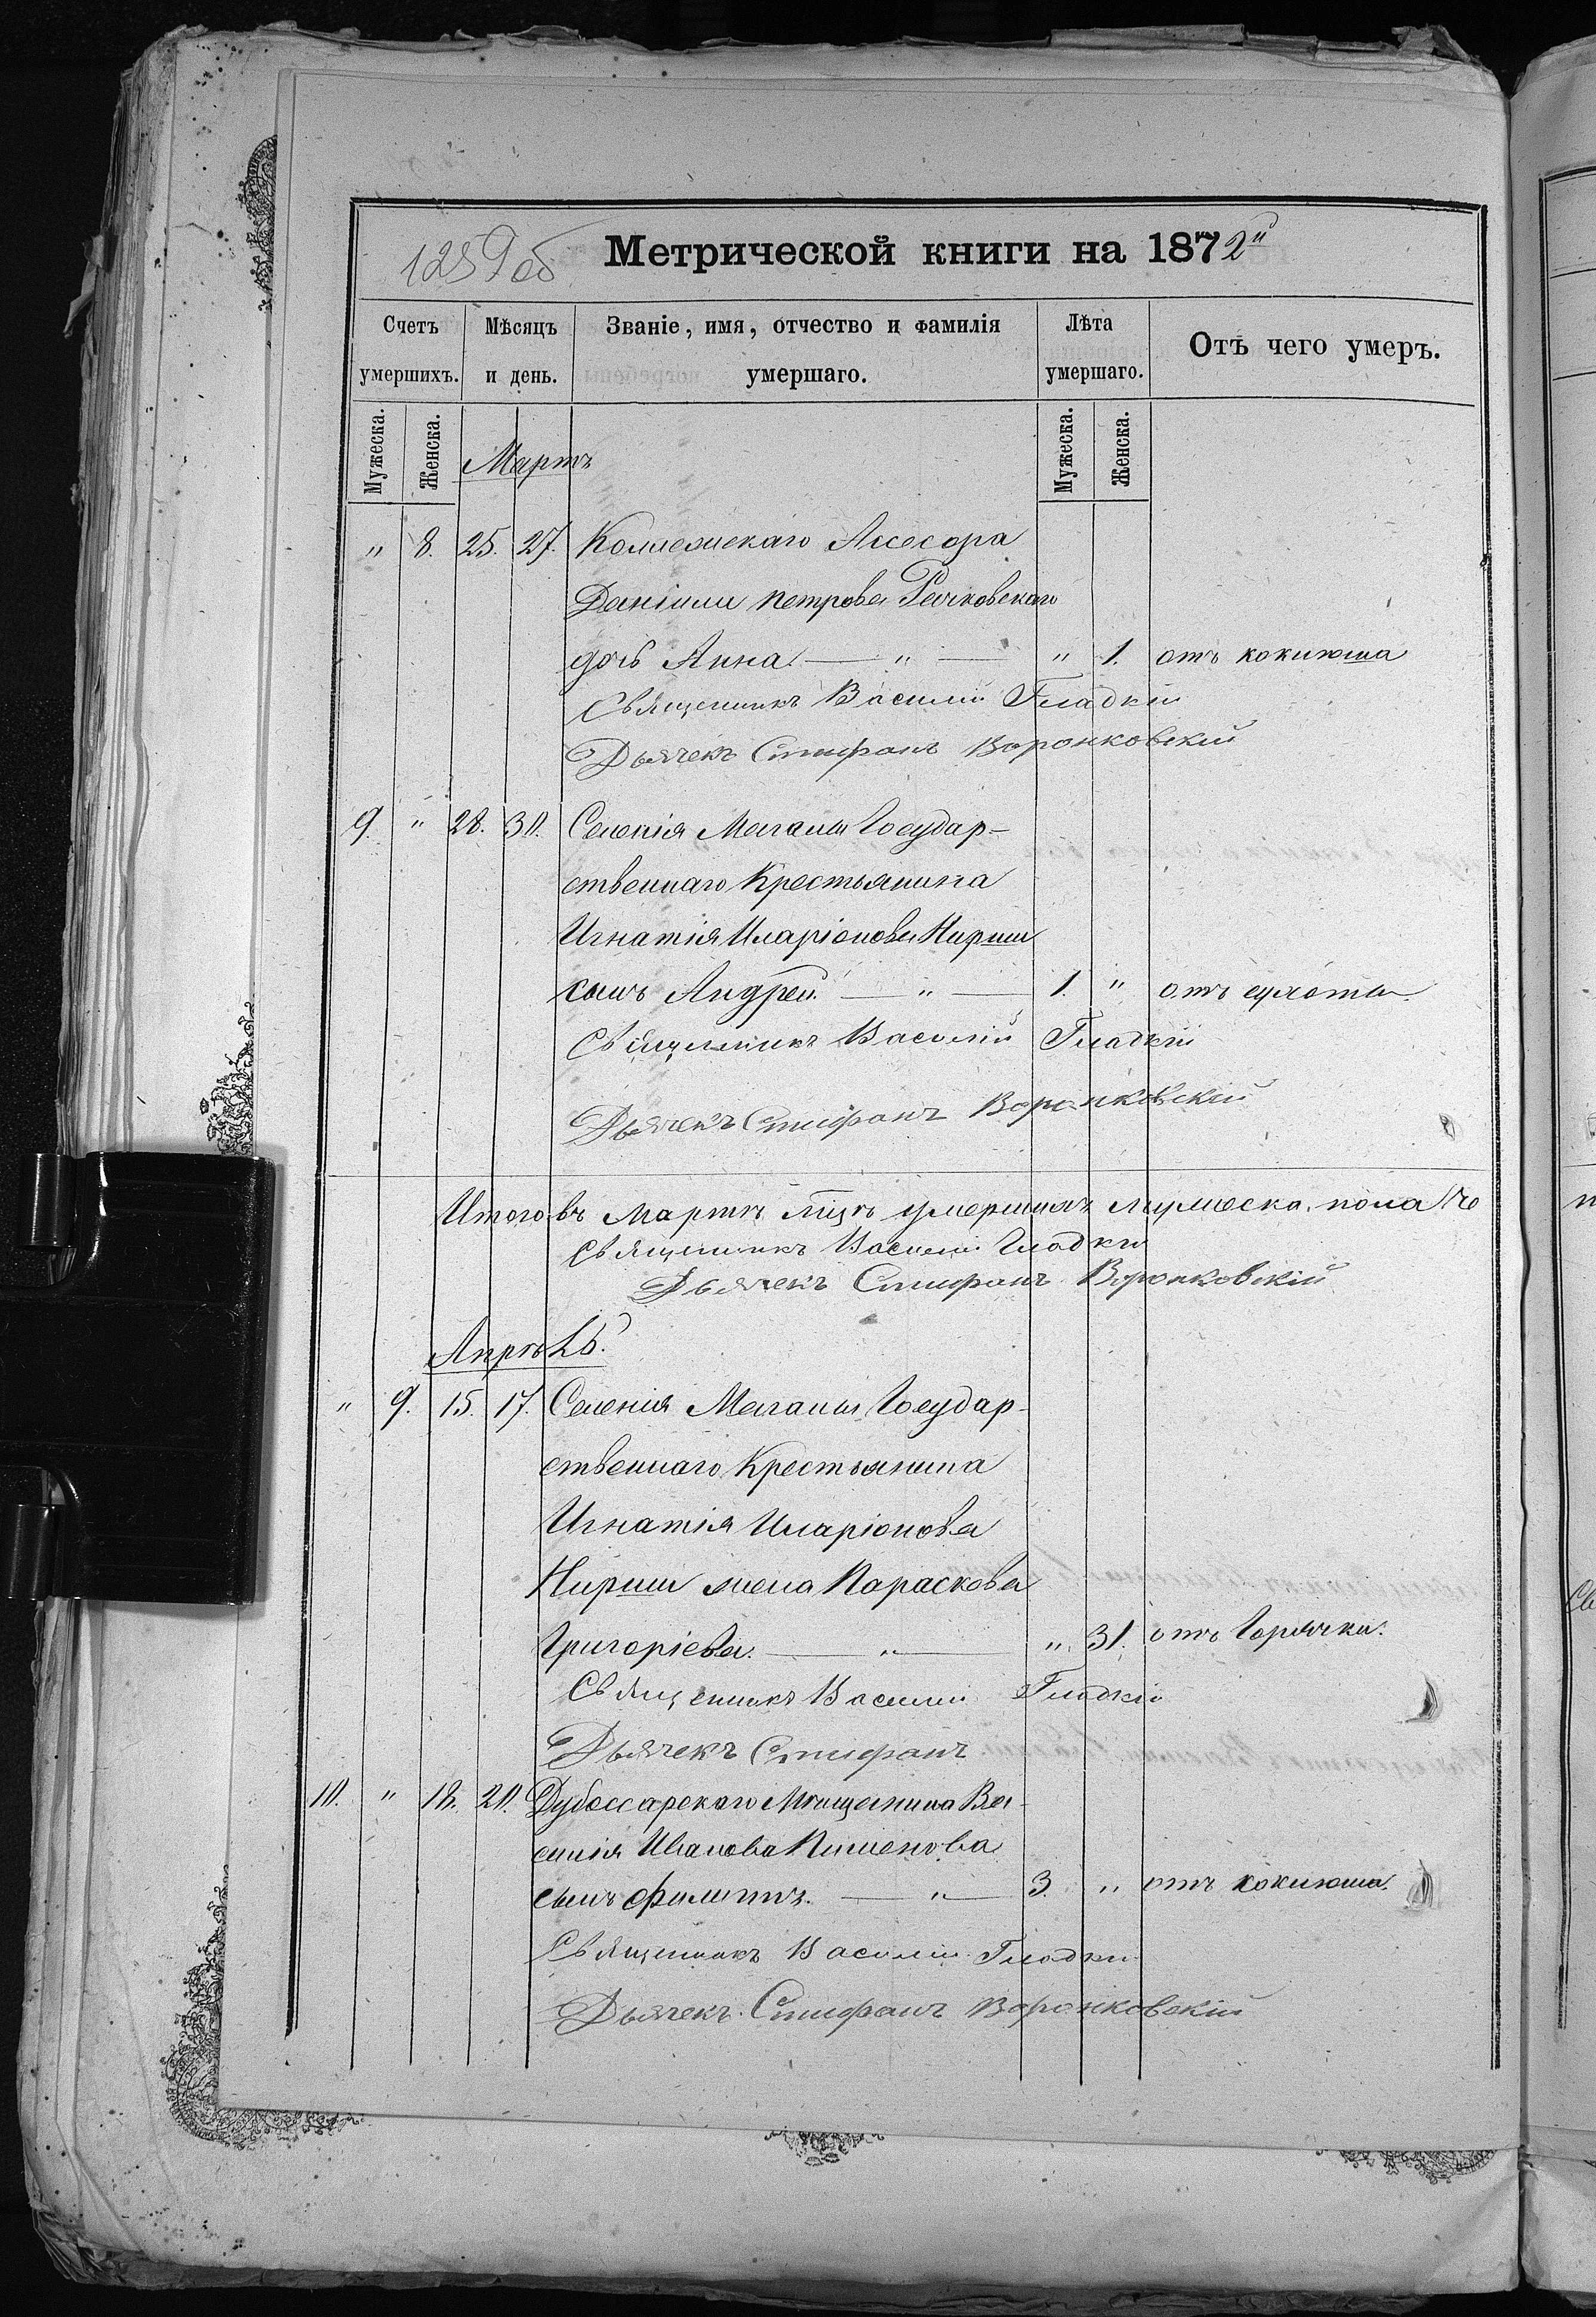 125 об Метрической книги на 1872й
Счетъ умершихъ. Мѣсяцъ и день. Званіе, имя, отчество и фамилія умершаго. Лѣта умершаго. Отъ чего умеръ.
Мужеска. Женска. Мужеска. Женска.
Мартъ
" 8. 25. 27. Коллежскаго Асесора
Даніила Петрова Рачковскаго
дочь Анна — " — " 1. отъ коклюша
Священникъ Василій Гладкій
Дьячекъ Стефанъ Воронковскій
9. " 28. 30. Селенія Магалы Государ-
ственнаго Крестьянина
Игнатія Иларіонова Кириш
сынъ Андрей. — " — 1. " отъ сухоты.
Священникъ Василій Гладкій
Дьячекъ Стефанъ Воронковскій
Итого въ Мартѣ м҃цѣ умершихъ мужеска. пола
Священникъ Василій Гладкій
Дьячекъ Стефанъ Воронковскій
Апрѣль.
" 9. 15. 17. Селенія Магалы Государ-
ственнаго Крестьянина
Игнатія Иларіонова
Кириш жена Параскева
Григоріева. — " — " 31. отъ Горячки.
Священникъ Василій Гладкій
Дьячекъ Стефанъ
10. " 18. 20. Дубоссарскаго Мѣщанина Ва-
силія Иванова Пименова
сынъ Филиппъ. — " — 3. " отъ коклюша.
Священникъ Василій Гладкій
Дьячекъ Стефанъ Воронковскій